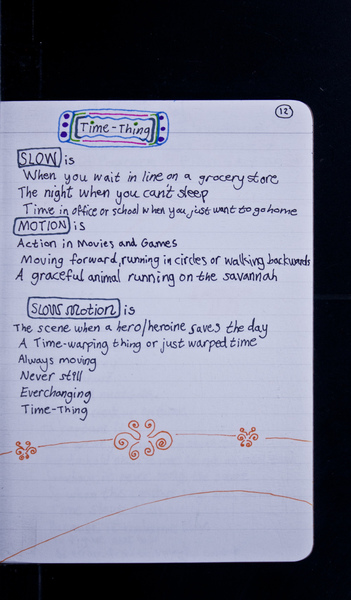 12
Time-Thing
SLOW is
When you wait in line on a grocery store
The night when you can't sleep
Time in office or school when you just want to go home
MOTION is
Action in Movies and Games
Moving forward, running in circles or walking backwards
A graceful animal running on the savannah
SLOW MOTION is
The scene when a hero/heroine saves the day
A Time-warping thing or just warped time
Always moving
Never still
Everchanging
Time-Thing